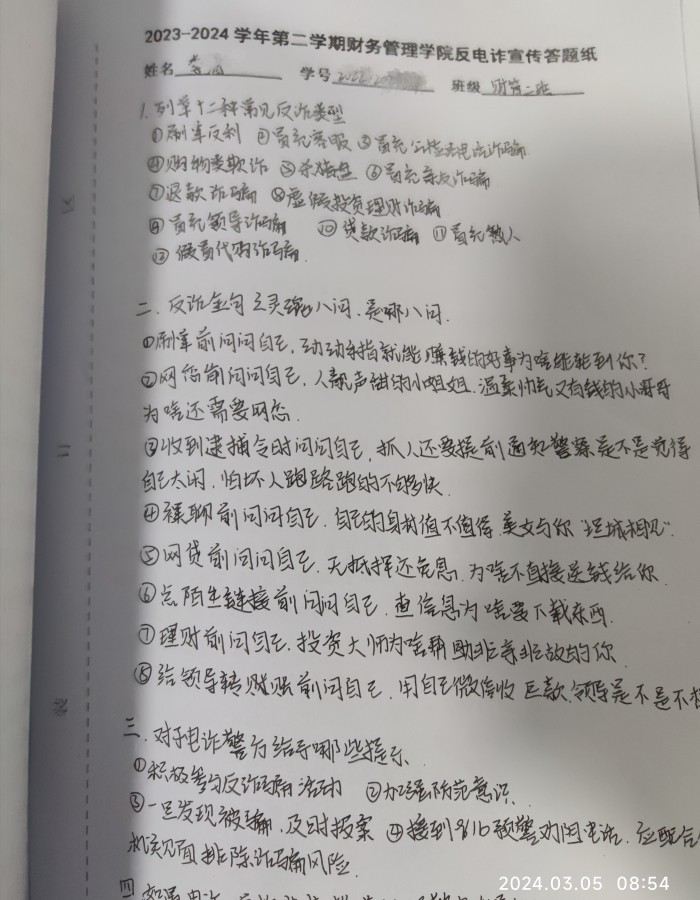 2023-2024 学年第二学期财务管理学院反电诈宣传答题纸
姓名 学号 班级 财管二班
1. 列举十二种常见反诈类型
①刷单反利 ②冒充客服 ③冒充公检法电话诈骗
④购物类欺诈 ⑤杀猪盘 ⑥冒充亲友诈骗
⑦退款诈骗 ⑧虚假投资理财诈骗
⑨冒充领导诈骗 ⑩贷款诈骗 ⑪冒充熟人
⑫假冒代购诈骗.
二. 反诈金句之灵魂八问. 是哪八问.
①刷单前问问自己, 动动手指就能赚钱的好事为啥能轮到你?
②网恋前问问自己, 人靓声甜的小姐姐. 温柔帅气又有钱的小哥哥
为啥还需要网恋.
③收到逮捕令时问问自己, 抓人还要提前通知 警察是不是觉得
自己太闲, 怕坏人跑路跑的不够快.
④裸聊前问问自己. 自己的身材值不值得 美女与你“坦诚相见”.
⑤网贷前问问自己. 无抵押还免息, 为啥不直接送钱给你.
⑥点陌生链接前问问自己, 查信息为啥要下载东西.
⑦理财前问自己, 投资大师为啥帮助非亲非故的你
⑧给领导转账前问自己. 用自己微信收巨款, 领导是不是不
三. 对于电诈警方给予哪些提示.
①积极参与反诈骗活动 ②加强防范意识.
③一旦发现被骗, 及时报案 ④接到96110预警劝阻电话. 应配合
面排除诈骗风险.
四